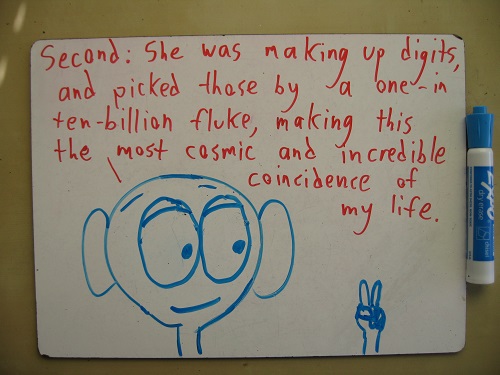 Second: She was making up digits,
and picked those by a one-in
ten-billion fluke, making this
the most cosmic and incredible
coincidence of
my life.
EXPO
dry erase